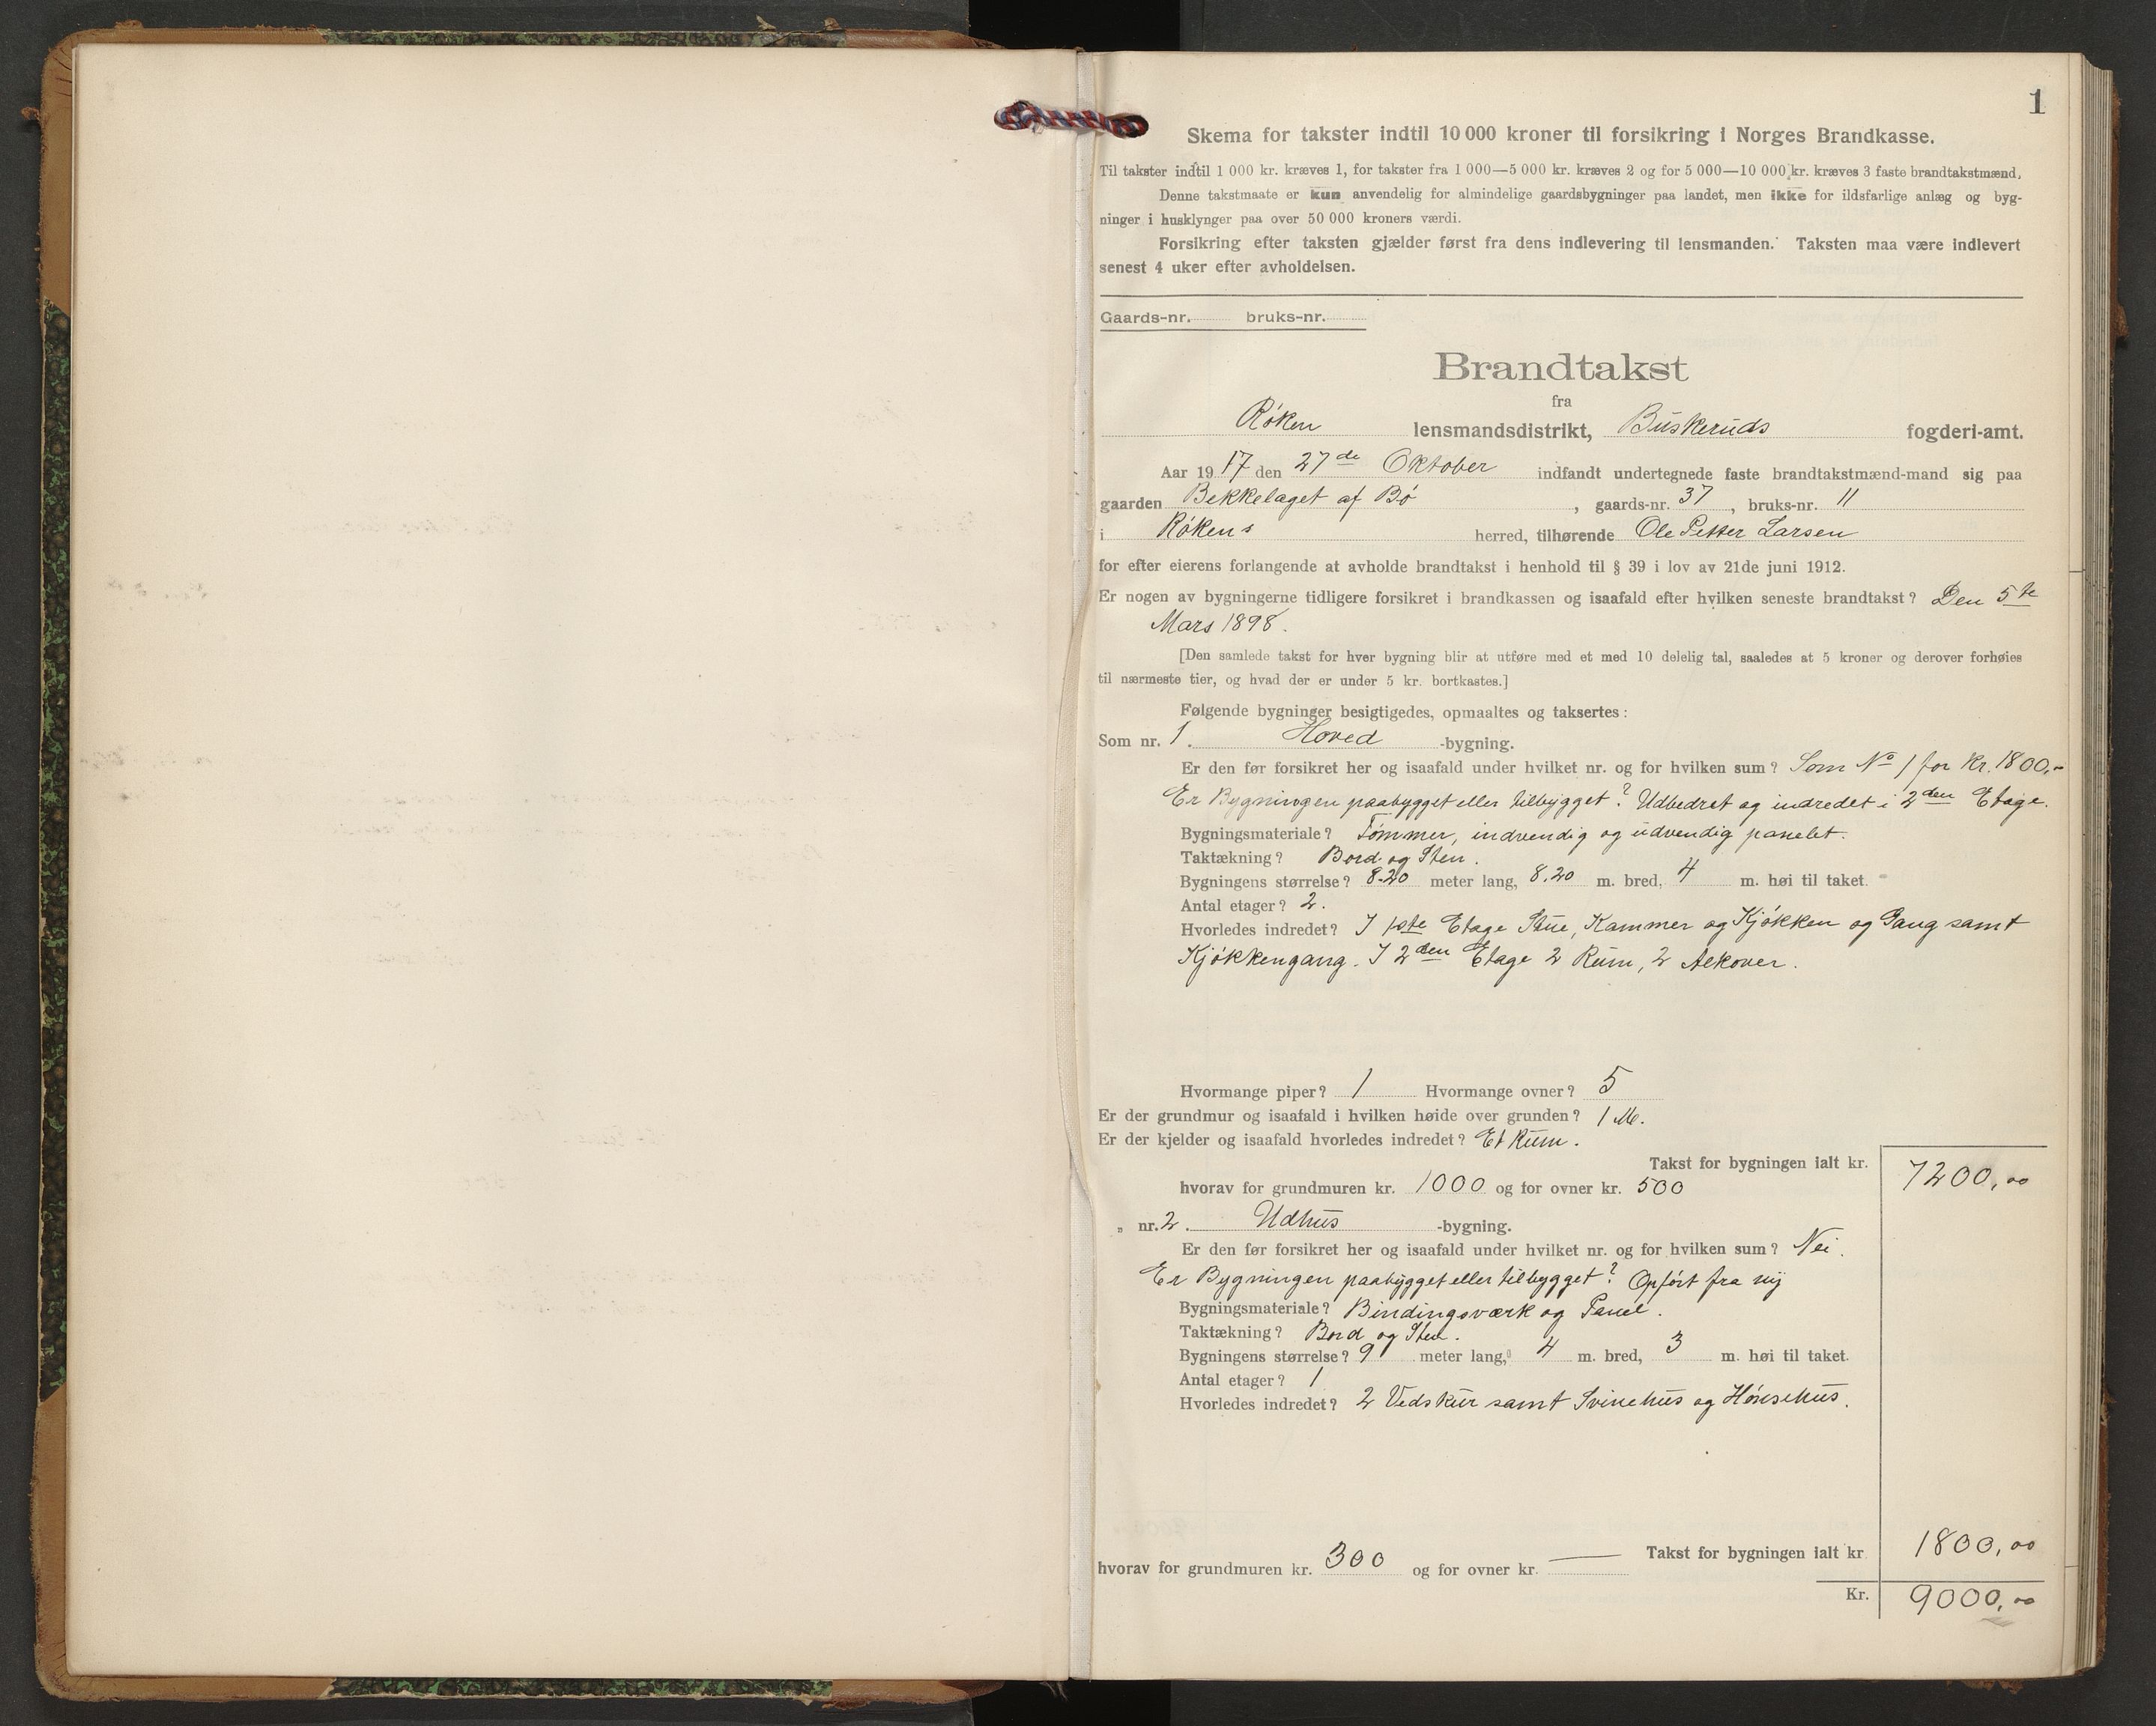 1
Skema for takster indtil 10 000 kroner til forsikring i Norges Brandkasse.
Til takster indtil 1 000 kr. kræves 1, for takster fra 1 000—5 000 kr. kræves 2 og for 5 000—10 000 kr. kræves 3 faste brandtakstmænd.
Denne takstmaate er kun anvendelig for almindelige gaardsbygninger paa landet, men ikke for ildsfarlige anlæg og byg-
ninger i husklynger paa over 50 000 kroners værdi.
Forsikring efter taksten gjælder først fra dens indlevering til lensmanden. Taksten maa være indlevert
senest 4 uker efter avholdelsen.
Gaards-nr. bruks-nr.
Brandtakst
fra
Røken lensmandsdistrikt, Buskeruds fogderi-amt.
Aar 1917 den 27de Oktober indfandt undertegnede faste brandtakstmænd-mand sig paa
gaarden Bekkelaget af Bø, gaards-nr. 37, bruks-nr. 11
i Røkens herred, tilhørende Ole Petter Larsen
for efter eierens forlangende at avholde brandtakst i henhold til § 39 i lov av 21de juni 1912.
Er nogen av bygningerne tidligere forsikret i brandkassen og isaafald efter hvilken seneste brandtakst? Den 5te
Mars 1898.
[Den samlede takst for hver bygning blir at utføre med et med 10 delelig tal, saaledes at 5 kroner og derover forhøies
til nærmeste tier, og hvad der er under 5 kr. bortkastes.]
Følgende bygninger besigtigedes, opmaaltes og taksertes:
Som nr. 1. Hoved -bygning.
Er den før forsikret her og isaafald under hvilket nr. og for hvilken sum? Som No 1 for Kr. 1800,-
Er Bygningen paabygget eller tilbygget? Udbedret og indredet i 2den Etage.
Bygningsmateriale? Tømmer, indvendig og udvendig panelet.
Taktækning? Bord og Sten.
Bygningens størrelse? 8.20 meter lang, 8.20 m. bred, 4 m. høi til taket.
Antal etager? 2.
Hvorledes indredet? I 1ste Etage Stue, Kammer og Kjøkken og Gang samt
Kjøkkengang. I 2den Etage 2 Rum, 2 Alkover.
Hvormange piper? 1 Hvormange ovner? 5
Er der grundmur og isaafald i hvilken høide over grunden? 1 M.
Er der kjelder og isaafald hvorledes indredet? Et Rum.
Takst for bygningen ialt kr. 7200,00
hvorav for grundmuren kr. 1000 og for ovner kr. 500
„ nr. 2. Udhus -bygning.
Er den før forsikret her og isaafald under hvilket nr. og for hvilken sum? Nei.
Er Bygningen paabygget eller tilbygget? Opført fra ny
Bygningsmateriale? Bindingsværk og Panel.
Taktækning? Bord og Sten.
Bygningens størrelse? 9 meter lang, 4 m. bred, 3 m. høi til taket.
Antal etager? 1
Hvorledes indredet? 2 Vedskur samt Svinehus og Hønsehus.
Takst for bygningen ialt kr 1800,00
hvorav for grundmuren kr. 300 og for ovner kr. —
Kr. 9000,00